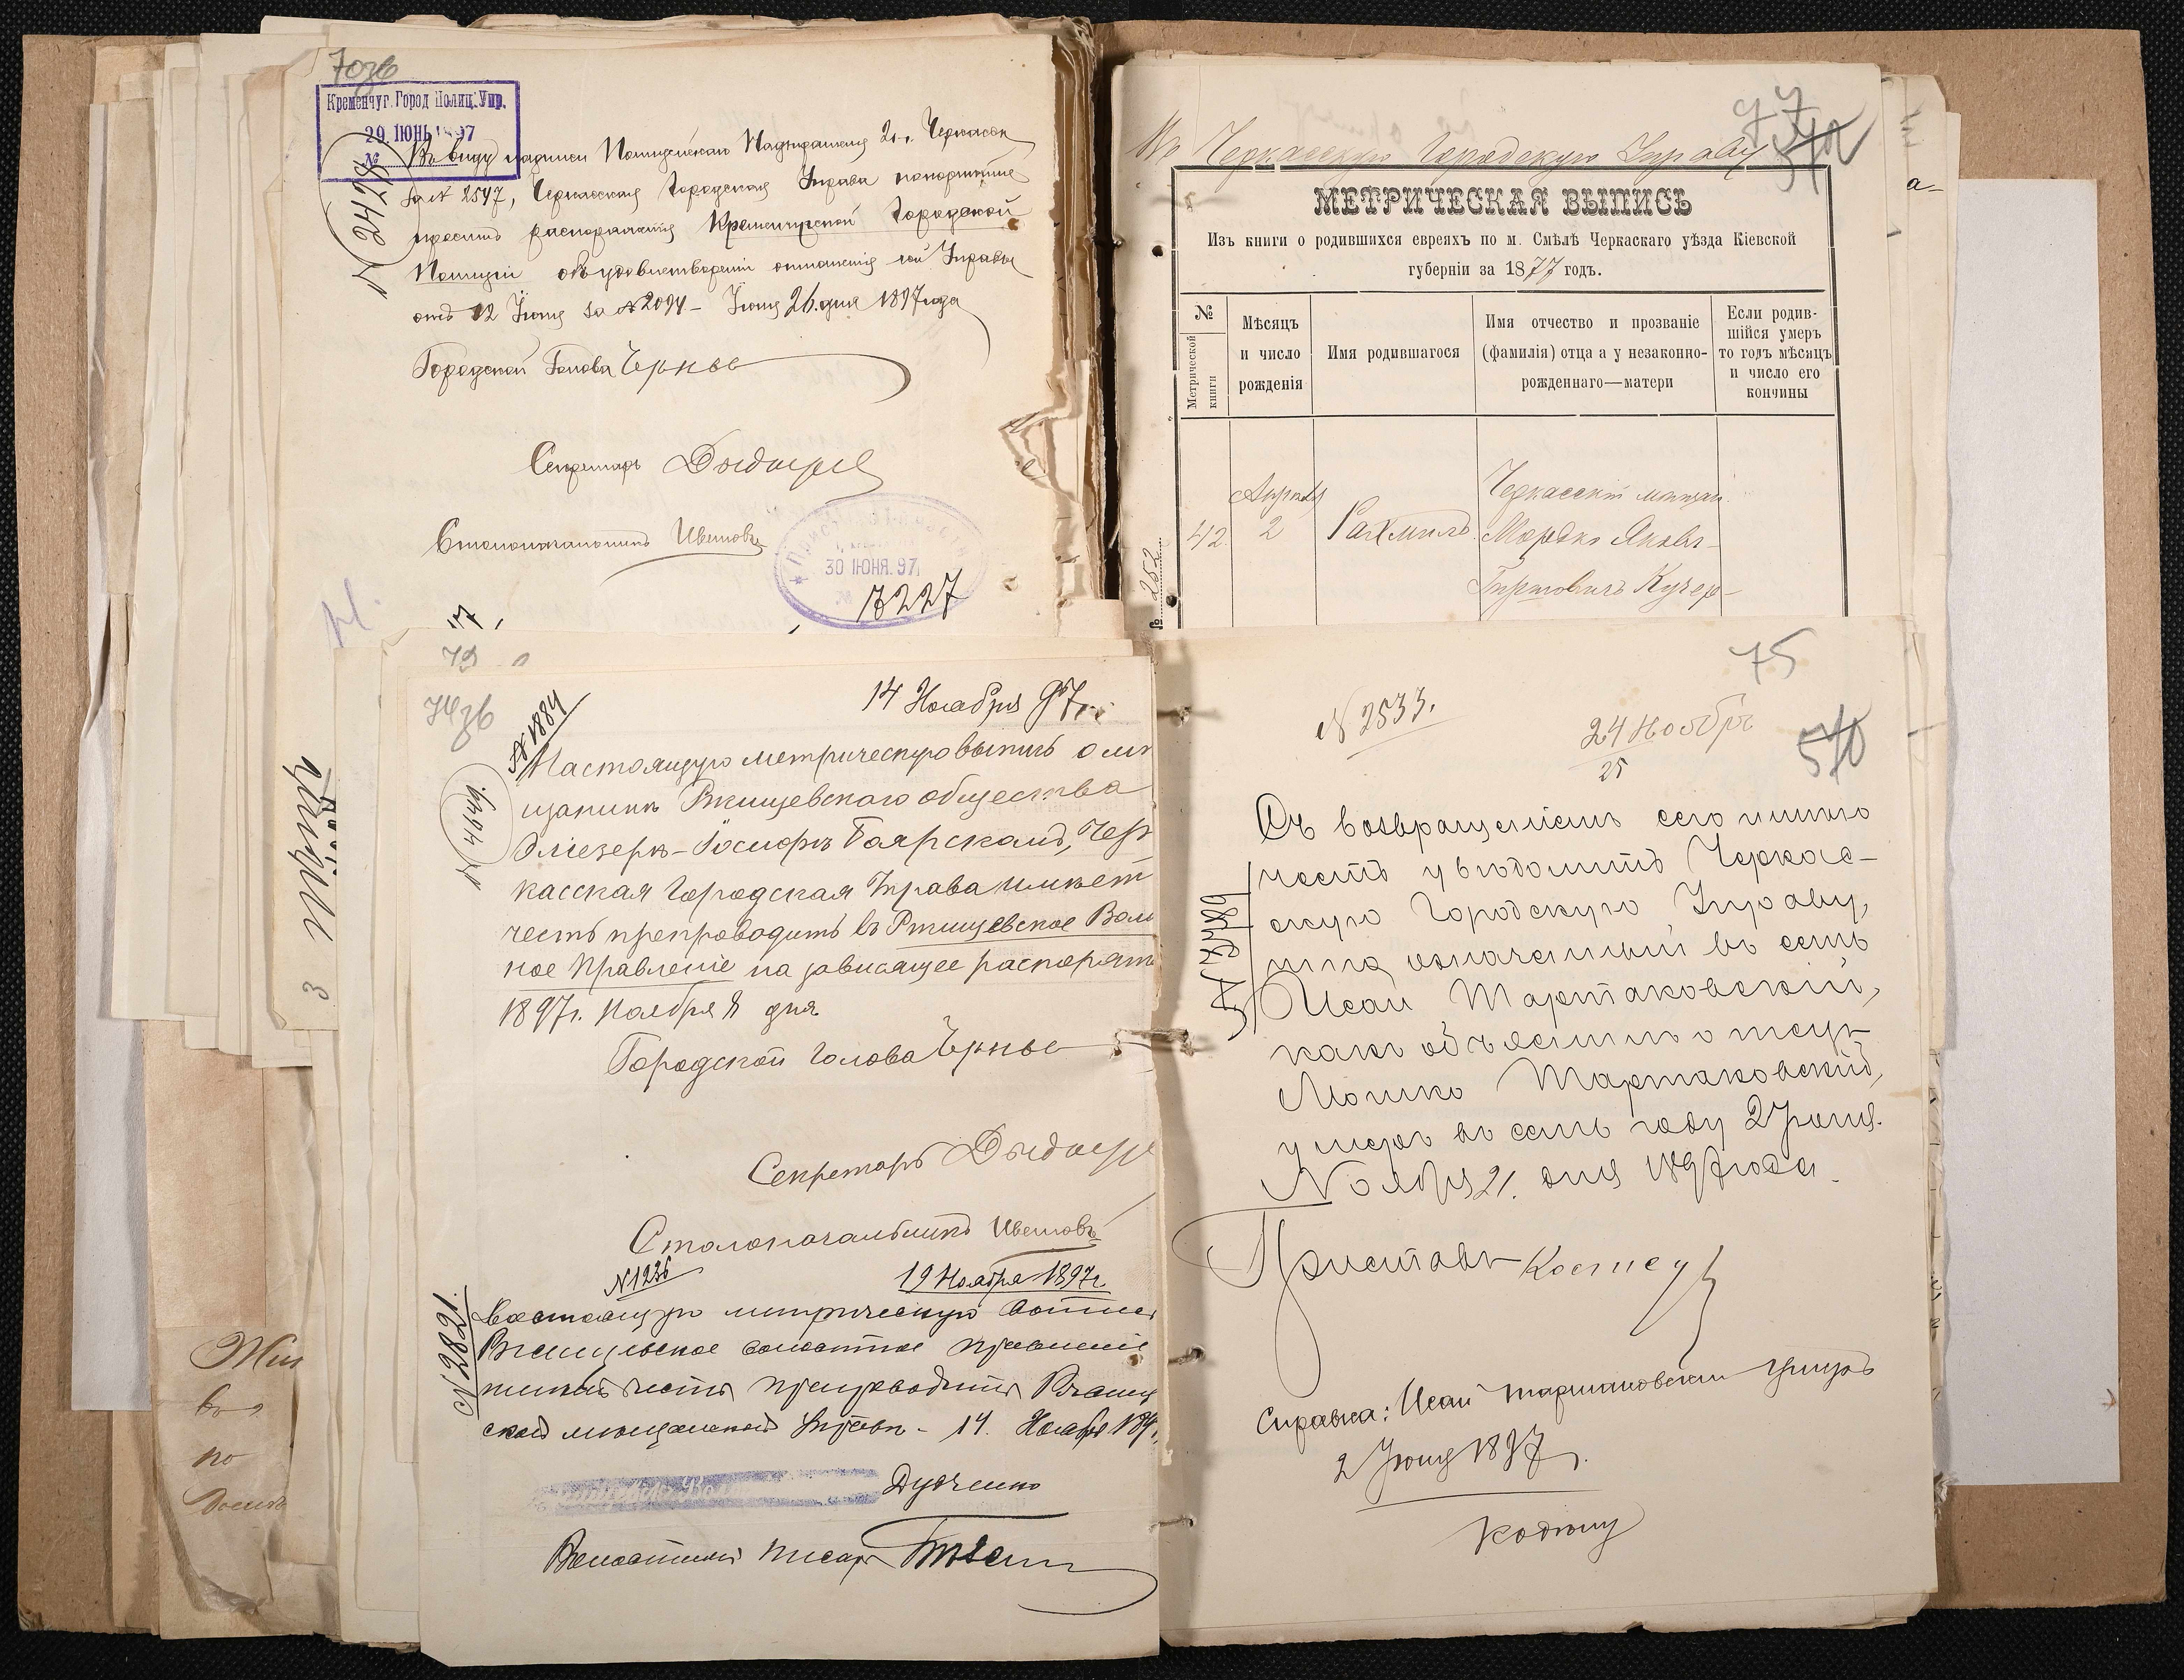 70 об
Кременчуг. Город Полиц. Упр.
29 ІЮНЬ 1897
№
№ 2427
Въ виду надписи Полицейскаго Надзирателя 2 ч. г. Черкассъ
за № 2547, Черкасская Городская Управа покорнѣйше
проситъ распоряженія Кременчугской Городской
Полиціи объ удовлетвореніи отношенія сей Управы
отъ 12 Іюня за № 2094 – Іюня 26 дня 1897 года
Городской Голова
Секретарь
Столоначальникъ
30 ІЮНЯ. 97
№
7227
77
Въ Черкасскую Городскую Управу
МЕТРИЧЕСКАЯ ВЫПИСЬ
Изъ книги о родившихся евреяхъ по м. Смѣлѣ Черкаскаго уѣзда Кіевской
губерніи за 1877 годъ.
№ Метрической книги
Мѣсяцъ и число рожденія
Имя родившагося
Имя отчество и прозваніе (фамилія) отца а у незаконно-рожденнаго—матери
Если родив-шійся умеръ то годъ мѣсяцъ и число его кончины
42.
Апрѣля
2
Рахмиль
Черкасскій мѣщан.
Мордко Янкель
Гершковичъ Кучер-
№ 252
74 об
№ 1884
14 Ноября 97 г.
№ 4649.
Настоящую метрическую выпись о мѣ
щанинѣ Ржищевскаго общества
Эліезеръ-Іосифѣ Боярскомъ, Чер
касская Городская Управа имѣет
честь препроводить въ Ржищевское Воло
ное Правленіе на зависящее распоряж
1897 г. Ноября 8 дня
Городской Голова
Секретарь
Столоначальникъ
№ 1236
19 Ноября 1897 г.
№ 2821.
Настоящую метрическую выпис
Ржищевское волостное правленіе
имѣетъ честь препроводить Ржищ
ской мѣщанской Управѣ - 14. Ноября 189
Дудченко
Волостной писарь
75
№ 2533.
24 Ноября
25
№ 4489
Съ возвращеніемъ сего имѣю
честь увѣдомить Черкас-
скую Городскую Управу,
что означенный въ семъ
Исай Тартаковскій,
какъ объяснилъ отецъ
Мошко Тартаковскій,
умеръ въ семъ году 2 Іюня.
Ноября 21. дня 1897 года.
Приставъ
Справка: Исай Тартаковскій умеръ
2 Іюня 1897 г.